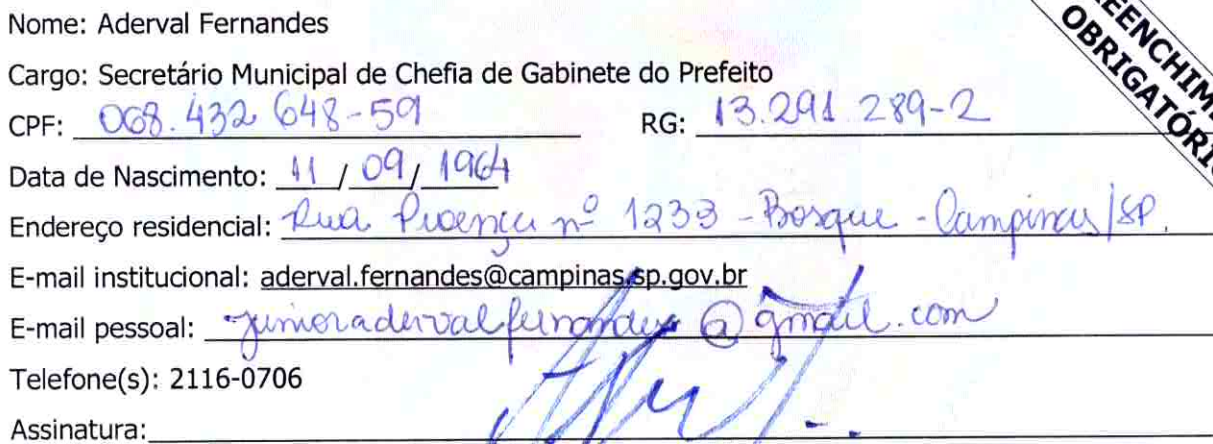 Nome: Aderval Fernandes
Cargo: Secretário Municipal de Chefia de Gabinete do Prefeito
CPF: 068.432 648-59 RG: 13.291 289-2
Data de Nascimento: 11 / 09 / 1964
Endereço residencial: Rua Proença nº 1233 - Bosque - Campinas/SP.
E-mail institucional: aderval.fernandes@campinas.sp.gov.br
E-mail pessoal: junioradervalfernandes@gmail.com
Telefone(s): 2116-0706
Assinatura:
OBRIGATÓRIO